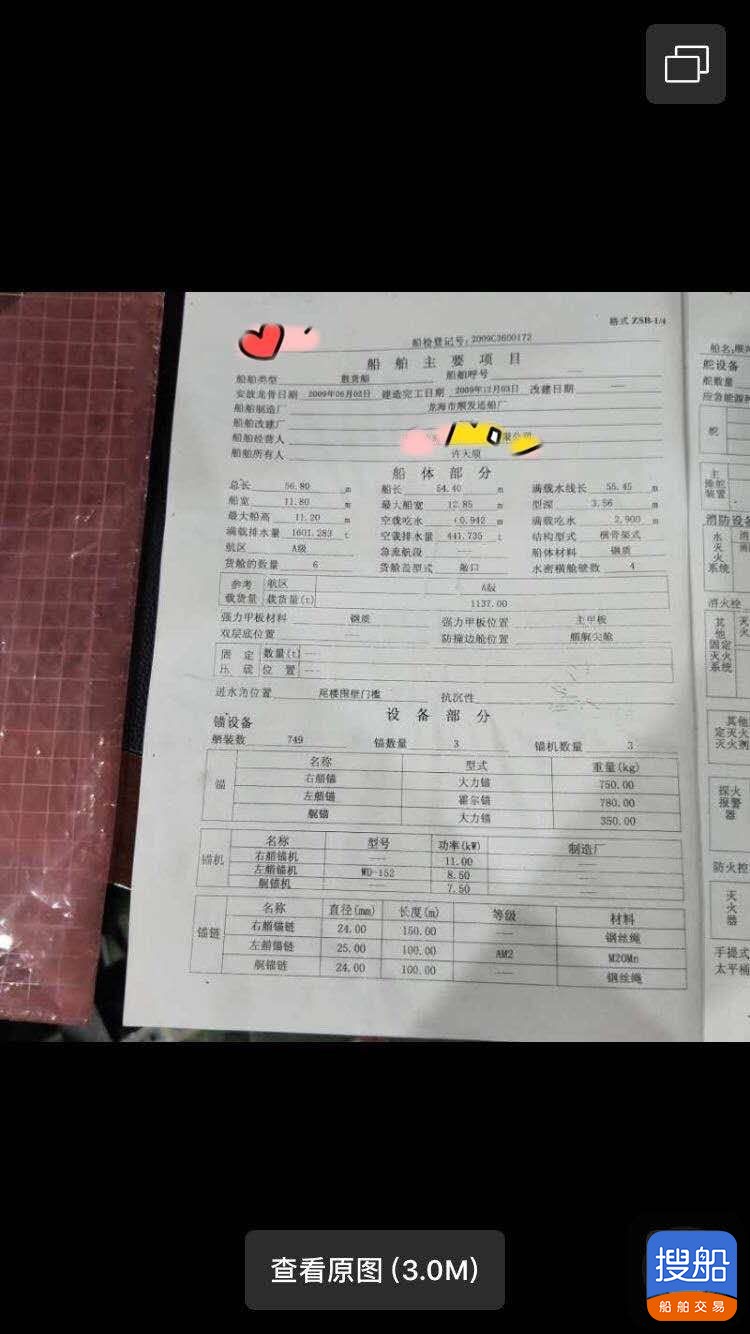 格式 ZSB-1/4
船检登记号: 2009C3600172
船舶主要项目
船舶类型 散货船 船舶呼号 ——
安放龙骨日期 2009年06月02日 建造完工日期 2009年12月03日 改建日期 ——
船舶制造厂 龙海市顺发造船厂
船舶改建厂
船舶经营人 限公司
船舶所有人
船体部分
总长 56.80 m 船长 54.40 m 满载水线长 55.45 m
船宽 11.80 m 最大船宽 12.85 m 型深 3.56 m
最大船高 11.20 m 空载吃水 0.942 m 满载吃水 2.900 m
满载排水量 1601.283 t 空载排水量 441.735 t 结构型式 横骨架式
航区 A级 急流航段 —— 船体材料 钢质
货舱的数量 6 货舱盖型式 敞口 水密横舱壁数 4
参考载货量 航区 A级
载货量(t) 1137.00
强力甲板材料 钢质 强力甲板位置 主甲板
双层底位置 —— 防撞边舱位置 艏艉尖舱
固定压底 数量(t) ——
位置 ——
进水角位置 尾楼围壁门槛 抗沉性
设备部分
锚设备
舾装数 749 锚数量 3 锚机数量 3
锚 名称 型式 重量(kg)
右艏锚 大力锚 750.00
左艏锚 霍尔锚 780.00
艉锚 大力锚 350.00
锚机 名称 型号 功率(kW) 制造厂
右艏锚机 —— 11.00 ——
左艏锚机 WD-152 8.50 ——
艉锚机 7.50 ——
锚链 名称 直径(mm) 长度(m) 等级 材料
右艏锚链 24.00 150.00 —— 钢丝绳
左艏锚链 25.00 100.00 AM2 M20Mn
艉锚链 24.00 100.00 —— 钢丝绳
船名:顺
舵设备
舵数量
应急能源
舵
主操舵装置
消防设备
水灭火系统
消火栓
其他固定灭火系统
其他
定灭火
灭火剂
探火报警器
防火控
灭火器
手提式
太平桶
查看原图 (3.0M)
搜船
船舶交易